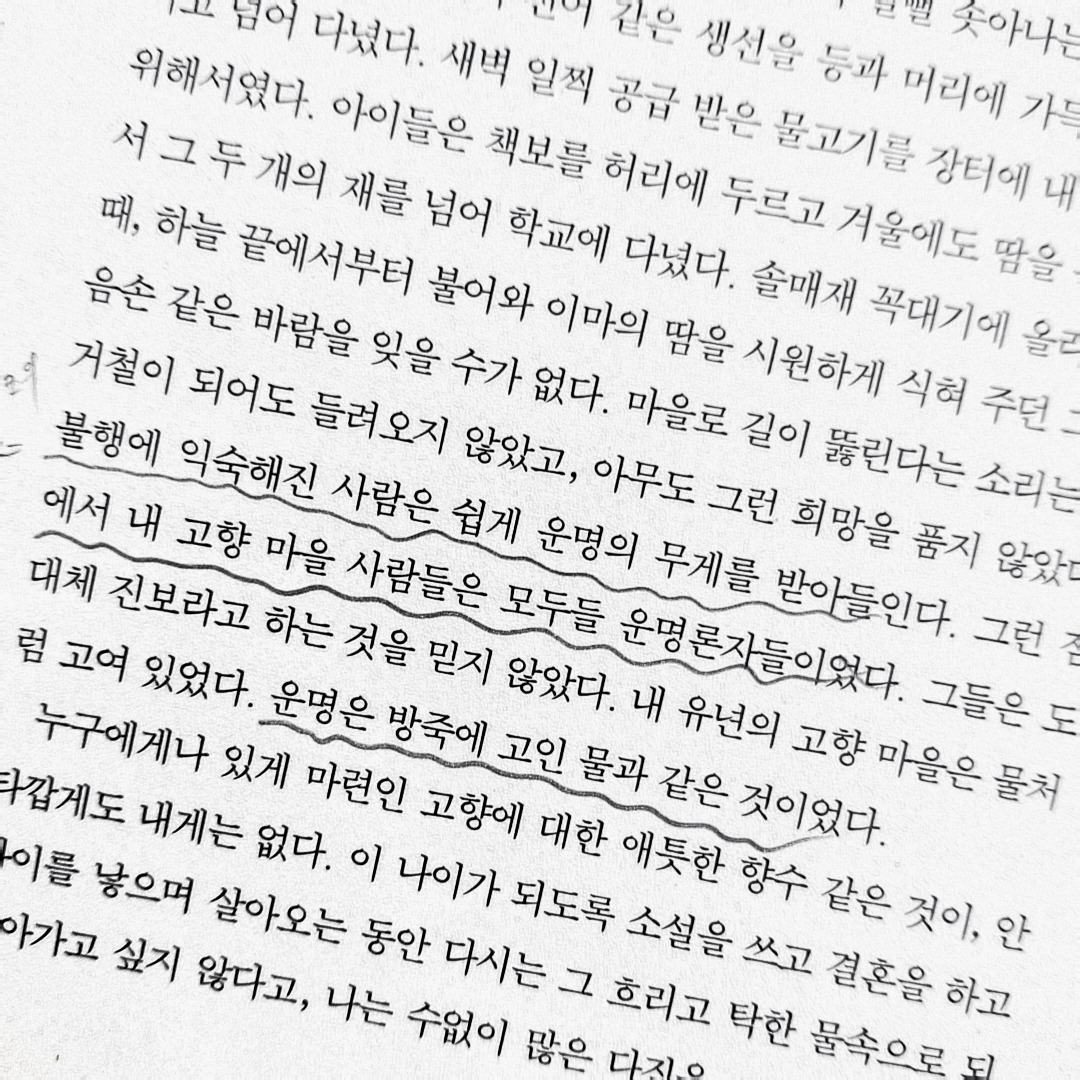 넘어 다녔다. 같은 생선을 등과 머리에
위해서였다. 새벽 일찍 공급 받은 물고기를 장터에
서 그 두 개의 재를 넘어 학교에 다녔다. 아이들은 책보를 허리에 두르고 겨울에도 땀을
때, 하늘 끝에서부터 불어와 이마의 땀을 시원하게 식혀 주던 솔매재 꼭대기에
음손 같은 바람을 잊을 수가 없다. 마을로 길이 뚫린다는 소리는
거철이 되어도 들려오지 않았고, 아무도 그런 희망을 품지
불행에 익숙해진 사람은 쉽게 운명의 무게를 받아들인다. 그런
에서 내 고향 마을 사람들은 모두들 운명론자들이었다. 그들은 도
대체 진보라고 하는 것을 믿지 않았다. 내 유년의 고향 마을은 물처
럼 고여 있었다. 운명은 방죽에 고인 물과 같은 것이었다.
누구에게나 있게 마련인 고향에 대한 애틋한 향수 같은 것이, 안
타깝게도 내게는 없다. 이 나이가 되도록 소설을 쓰고 결혼을 하고
낳으며 살아오는 동안 다시는 그 흐리고 탁한 물속으로
싶지 않다고, 나는 수없이 많은